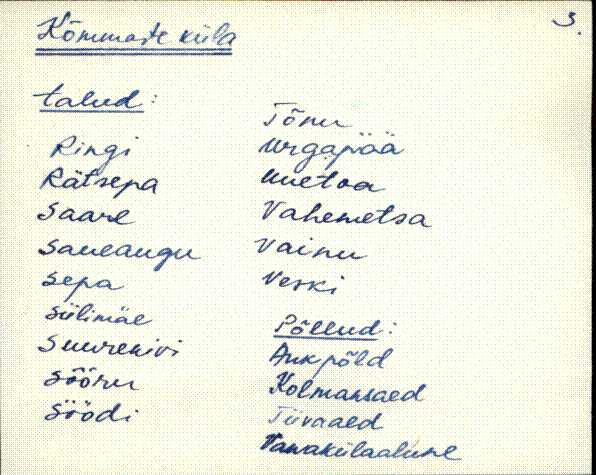 3.
Kõmmaste küla
talud:
Ringi
Rätsepa
Saare
Saueaugu
Sepa
Siilimäe
Suurekivi
Sõõru
Söödi
Tõnu
Urgapõõ
Uuetoa
Vahemetsa
Vainu
Veski
Põllud:
Aukpõld
Kolmansaed
Tiivaaed
Vanakülaalune